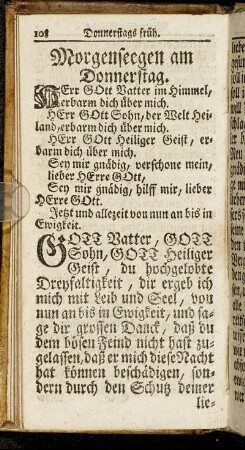 108 Donnerstags früh.
Morgenseegen am
Donnerstag.
HErr GOtt Vatter im Himmel,
erbarm dich über mich.
HErr GOtt Sohn, der Welt Hei-
land, erbarm dich über mich.
HErr GOtt Heiliger Geist, er-
barm dich über mich.
Sey mir gnädig, verschone mein,
lieber HErre GOtt,
Sey mir gnädig, hilff mir, lieber
HErre GOtt.
Jetzt und allezeit von nun an bis in
Ewigkeit.
GOTT Vatter, GOTT
Sohn, GOTT Heiliger
Geist, du hochgelobte
Dreyfaltigkeit, dir ergeb ich
mich mit Leib und Seel, von
nun an bis in Ewigkeit, und sa-
ge dir grossen Danck, daß du
dem bösen Feind nicht hast zu-
gelassen, daß er mich diese Nacht
hat können beschädigen, son-
dern durch den Schutz deiner
lie-